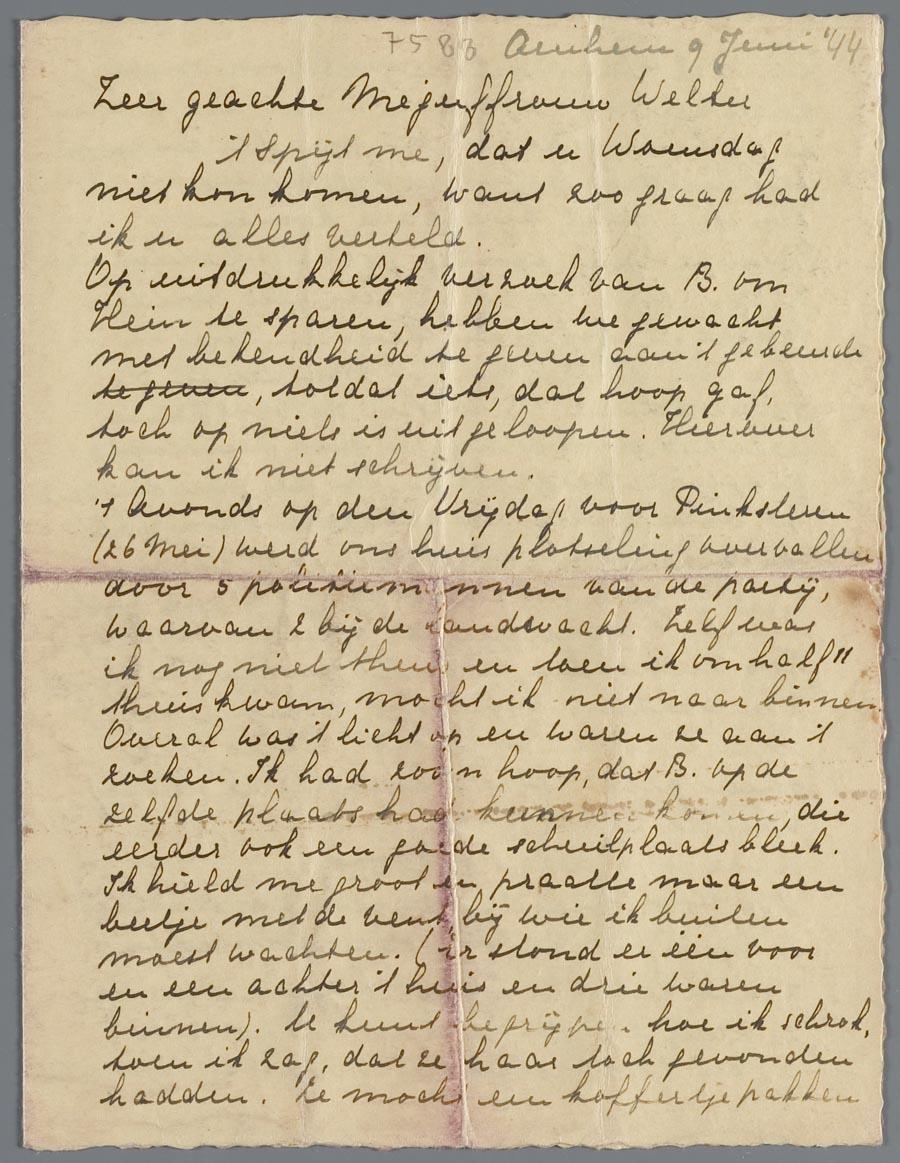 7583 Arnhem 9 Juni '44
Zeer geachte Mejuffrouw Welter
't Spijt me, dat u Woensdag
niet kon komen, want zoo graag had
ik u alles verteld.
Op uitdrukkelijk verzoek van B. om
Hein te sparen, hebben we gewacht
met bekendheid te geven aan 't gebeurde
te geven, totdat iets, dat hoop gaf,
toch op niets is uitgeloopen. Hierover
kan ik niet schrijven.
's Avonds op den Vrijdag voor Pinksteren
(26 Mei) werd ons huis plotseling overvallen
door 5 politiemannen van de partij,
waarvan 2 bij de landwacht. Zelf was
ik nog niet thuis en toen ik om half 11
thuiskwam, mocht ik niet naar binnen.
Overal was 't licht op en waren ze aan 't
zoeken. Ik had zoo'n hoop, dat B. op de
zelfde plaats had kunnen komen, die
eerder ook een goede schuilplaats bleek.
Ik hield me groot en praatte maar een
beetje met de vent, bij wie ik buiten
moest wachten. (Er stond er één voor
en een achter 't huis en drie waren
binnen). U kunt begrijpen hoe ik schrok,
toen ik zag, dat ze haar toch gevonden
hadden. Ze mocht een koffertje pakken